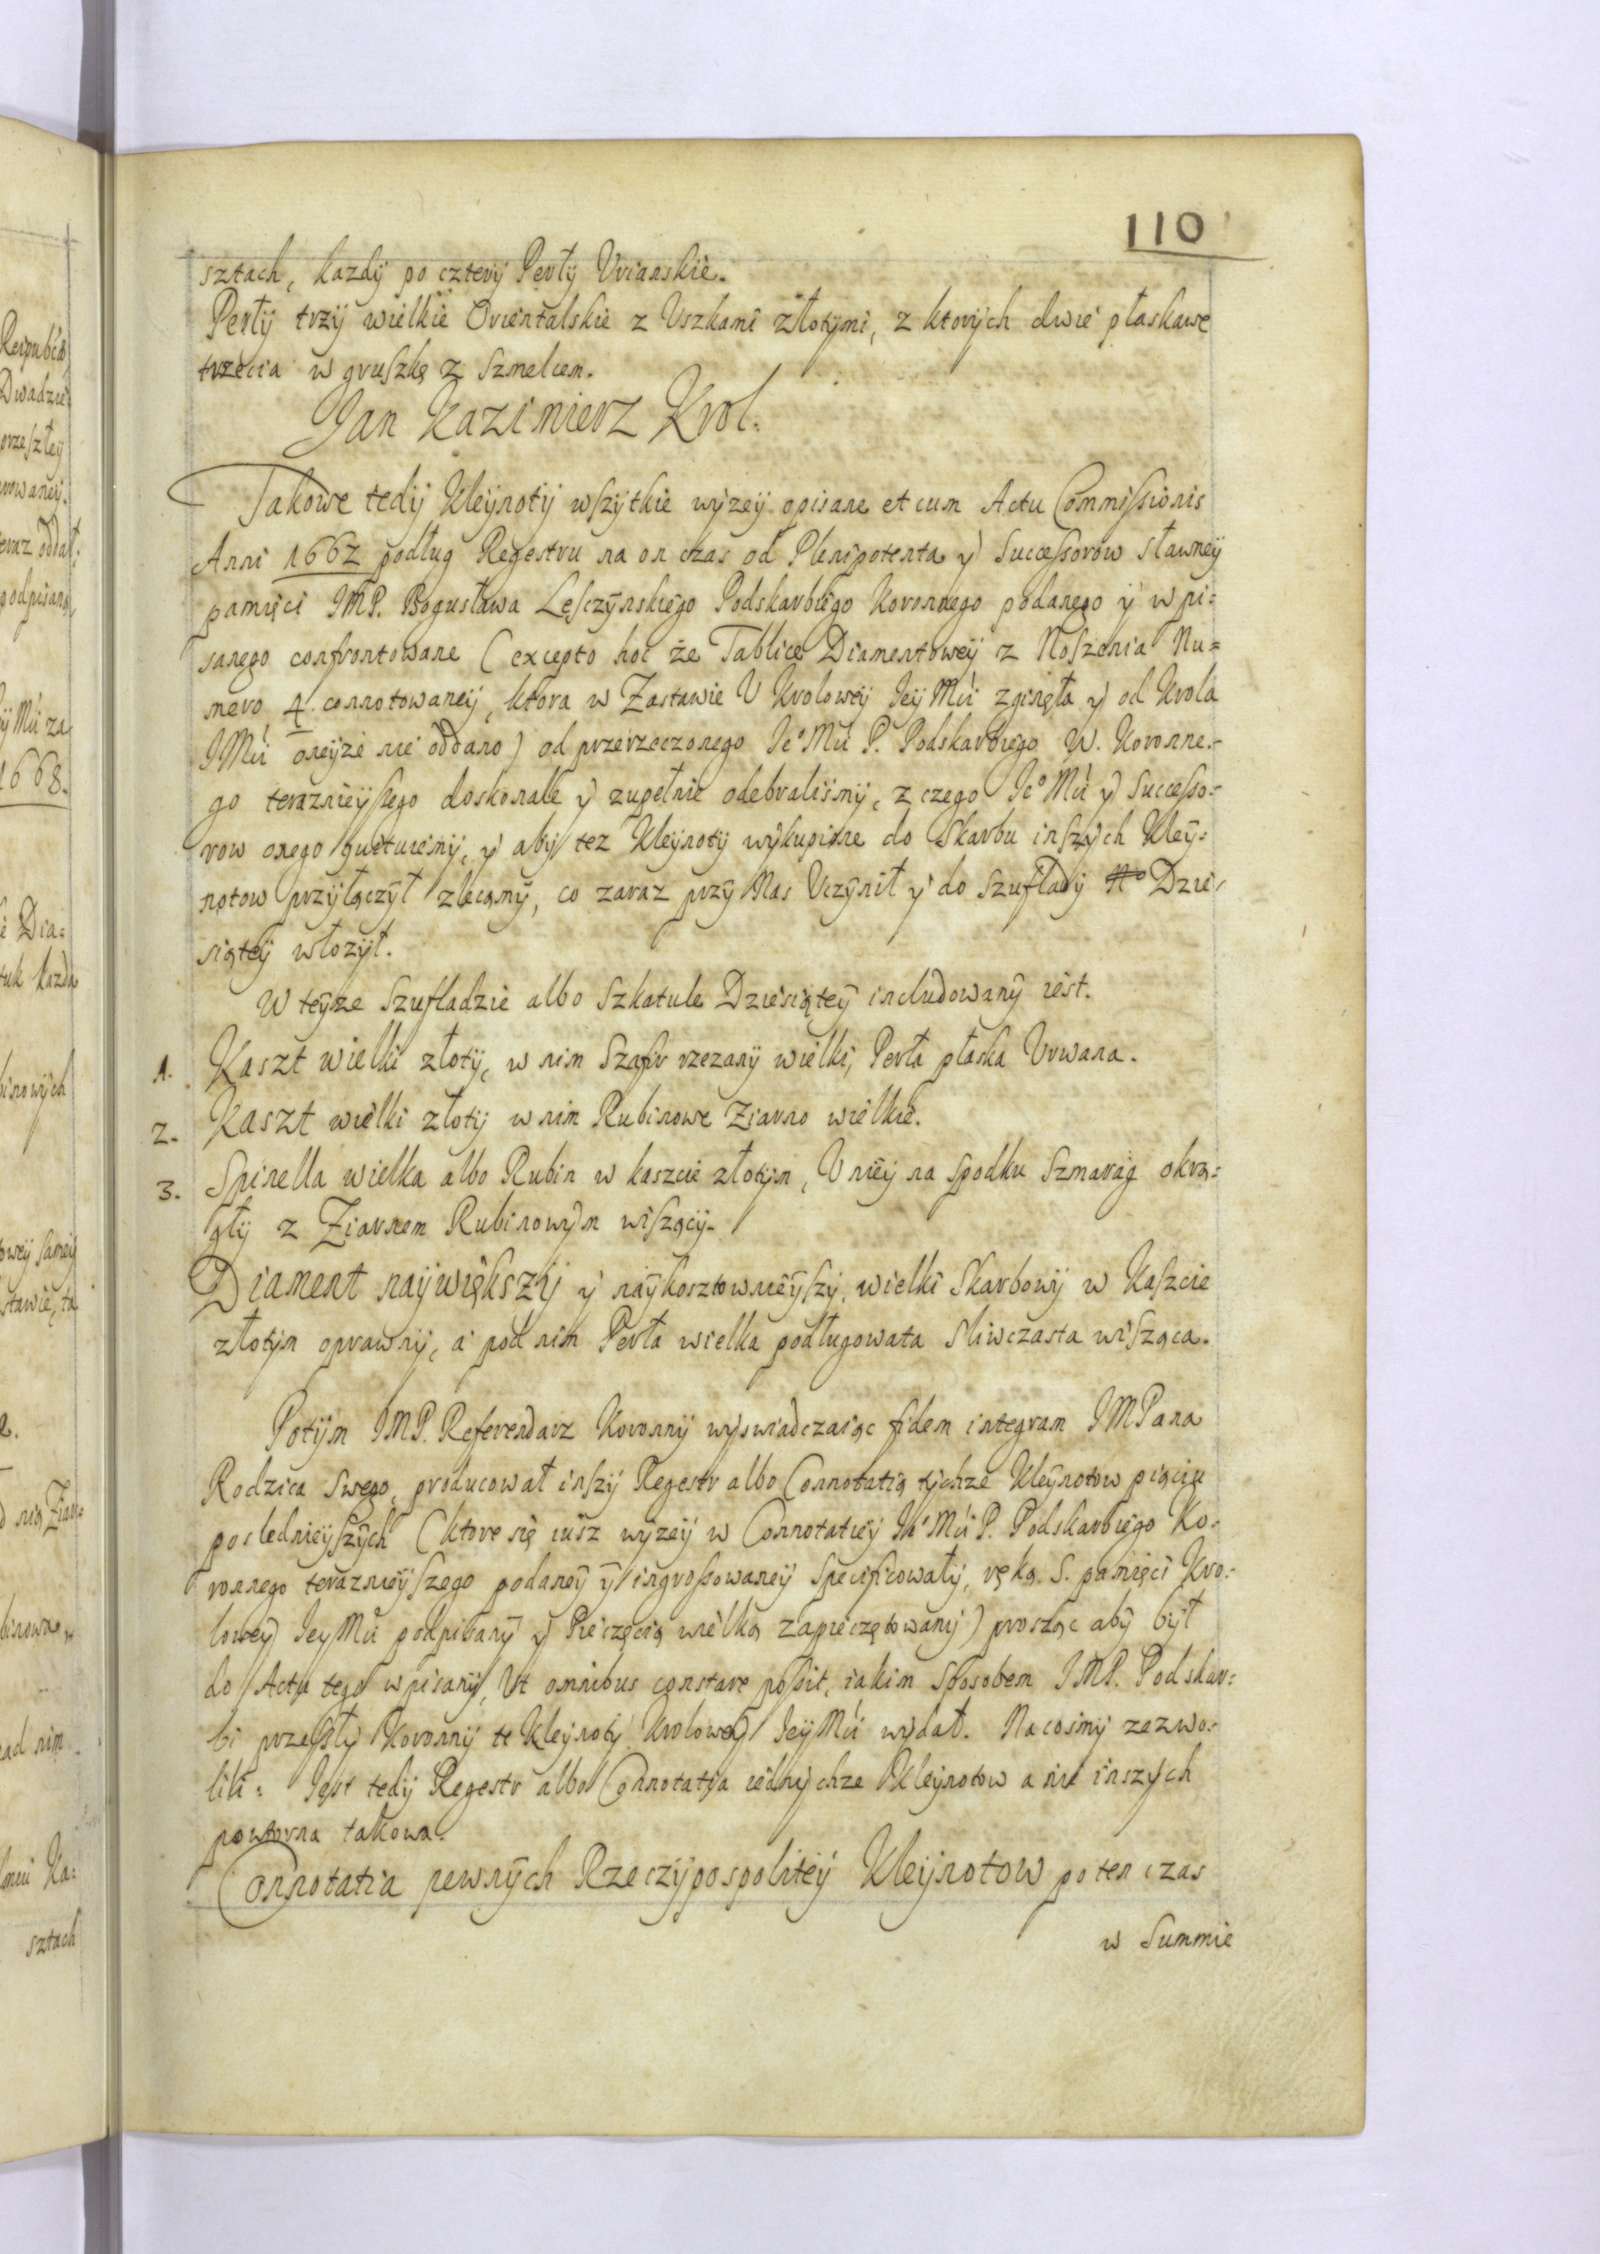 110
sztach, kazdy po cztery Perły Vrianskie.
Perły trzy wielkie Orientalskie z Vszkami złotymi, z ktorych dwie płaskawe
trzecia w gruszkę z szmelcem.
Jan Kazimierz Krol.
Takowe tedy Kleynoty wszytkie wyzey opisane et cum Actu Commissionis
Anni 1662 podług Regestru na on czas od Plenipotenta y Successorow sławney
pamięci IMP. Bogusława Lesczynskiego Podskarbiego Koronnego podanego y wpi=
sanego confrontowane (excepto hoc że Tablice Diamentowey z Noszenia Nu=
mero 4 connotowaney, ktora w Zastawie V Krolowey Jey Mći zginęła y od Krola
IMći oneyże nie oddano) od przerzeczonego Je° Mći P. Podskarbiego W. Koronne=
go teraznieyszego doskonale y zupełnie odebraliśmy, z czego Je° Mći y Successo=
row onego quituiemy, y aby tez Kleynoty wykupione do Skarbu inszych Kley=
notow przyłączył zlecamy, co zaraz przy Nas Vczynił y do Szuflady Dzie=
siątey włozył.
W teyze Szufladzie albo Szkatule Dziesiątey includowany iest.
1. Kaszt wielki złoty, w nim Szafir rzezany wielki, Perła płaska Vrwana.
2. Kaszt wielki złoty w nim Rubinowe Ziarno wielkie.
3. Spinella wielka albo Rubin w kaszcie złotym, V niey na spodku Szmarag okrą=
gły z Ziarnem Rubinowym wiszący.
Diament naywiększy y naykosztownieyszy, wielki Skarbowy w Kaszcie
złotym oprawny, a pod nim Perła wielka podługowata Sliwczasta wisząca.
Potym IMP. Referendarz Koronny wyswiadczaiąc fidem integram IMPana
Rodzica swego, producował inszy Regestr albo Connotatią tychze Kleynotow pięciu
poslednieyszych (ktore się iusz wyzey w Connotatiey Je° Mći P. Podskarbiego Ko=
ronnego teraznieyszego podaney y ingrossowaney specificowały, ręką S. pamięci Kro=
lowey Jey Mći podpisany y Pieczęcią wielką zapieczętowany) prosząc aby był
do Actu tego wpisany, Vt omnibus constare possit, iakim sposobem IMP. Podskar=
bi przeszły Koronny te Kleynoty Krolowey Jey Mći wydał. Na cosmy zezwo=
lili: Jest tedy Regestr albo Connotatia iednychze Kleynotow a nie inszych
powtorna takowa.
Connotatia pewnych Rzeczypospolitey Kleynotow poten czas
w Summie